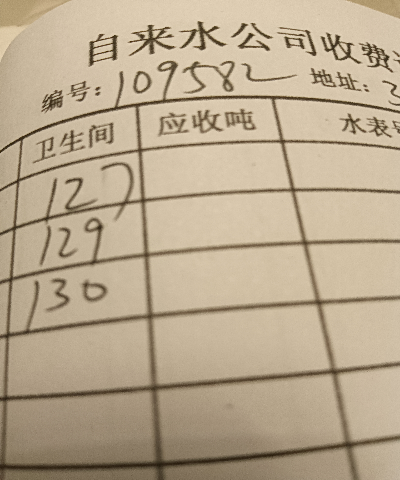 自来水公司收费
编号：109582 地址：3
卫生间 应收吨 水表号
127
129
130